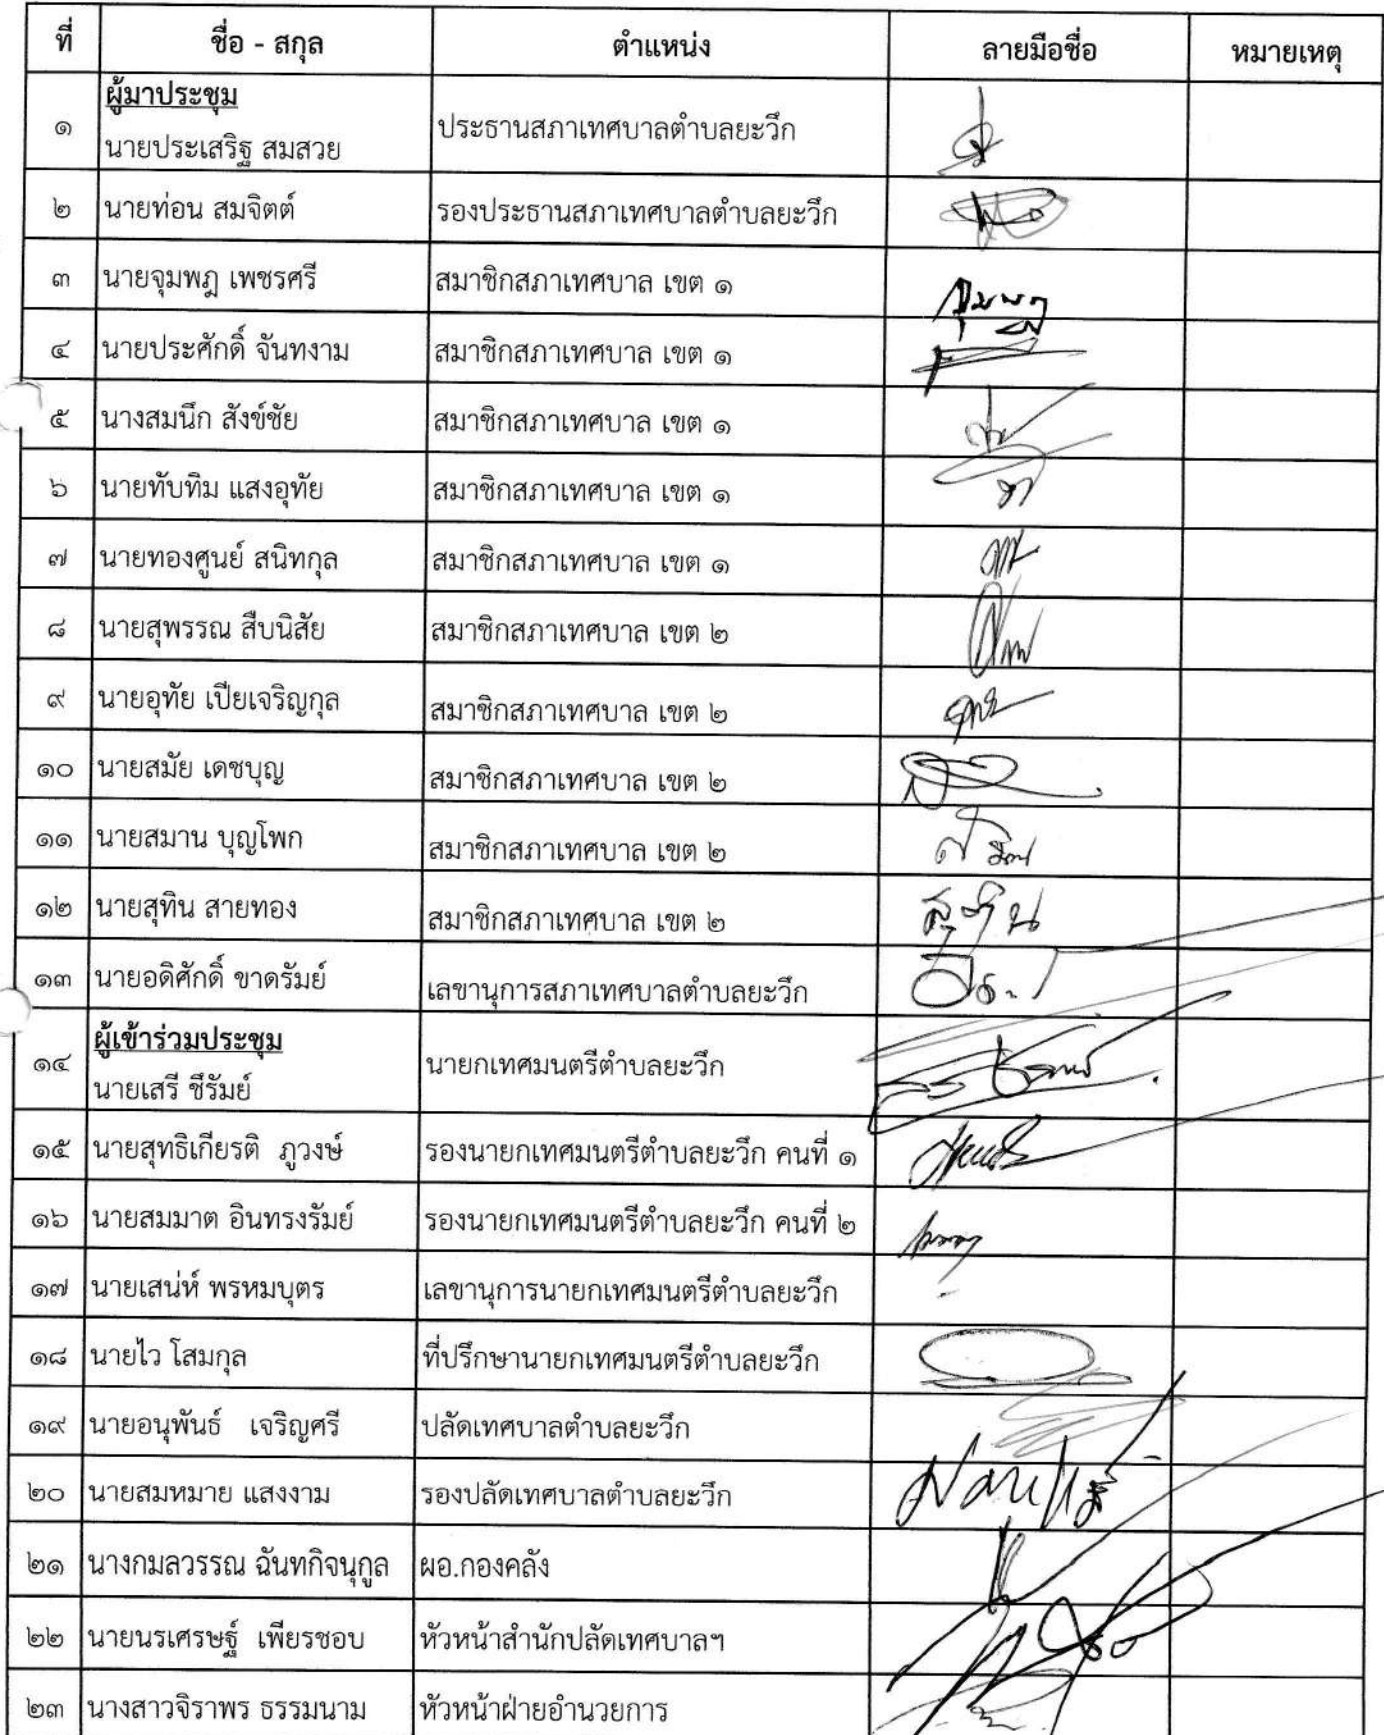 ที่ ชื่อ - สกุล ตำแหน่ง ลายมือชื่อ หมายเหตุ
ผู้มาประชุม
๑ นายประเสริฐ สมสวย ประธานสภาเทศบาลตำบลยะวึก
๒ นายท่อน สมจิตต์ รองประธานสภาเทศบาลตำบลยะวึก
๓ นายจุมพฎ เพชรศรี สมาชิกสภาเทศบาล เขต ๑ จุมพฎ
๔ นายประศักดิ์ จันทงาม สมาชิกสภาเทศบาล เขต ๑
๕ นางสมนึก สังข์ชัย สมาชิกสภาเทศบาล เขต ๑
๖ นายทับทิม แสงอุทัย สมาชิกสภาเทศบาล เขต ๑
๗ นายทองศูนย์ สนิทกุล สมาชิกสภาเทศบาล เขต ๑
๘ นายสุพรรณ สืบนิสัย สมาชิกสภาเทศบาล เขต ๒
๙ นายอุทัย เปียเจริญกุล สมาชิกสภาเทศบาล เขต ๒
๑๐ นายสมัย เดชบุญ สมาชิกสภาเทศบาล เขต ๒
๑๑ นายสมาน บุญโพก สมาชิกสภาเทศบาล เขต ๒
๑๒ นายสุทิน สายทอง สมาชิกสภาเทศบาล เขต ๒ สุทิน
๑๓ นายอดิศักดิ์ ขาดรัมย์ เลขานุการสภาเทศบาลตำบลยะวึก
ผู้เข้าร่วมประชุม
๑๔ นายเสรี ชีรัมย์ นายกเทศมนตรีตำบลยะวึก
๑๕ นายสุทธิเกียรติ ภูวงษ์ รองนายกเทศมนตรีตำบลยะวึก คนที่ ๑
๑๖ นายสมมาต อินทรงรัมย์ รองนายกเทศมนตรีตำบลยะวึก คนที่ ๒
๑๗ นายเสน่ห์ พรหมบุตร เลขานุการนายกเทศมนตรีตำบลยะวึก
๑๘ นายไว โสมกุล ที่ปรึกษานายกเทศมนตรีตำบลยะวึก
๑๙ นายอนุพันธ์ เจริญศรี ปลัดเทศบาลตำบลยะวึก
๒๐ นายสมหมาย แสงงาม รองปลัดเทศบาลตำบลยะวึก
๒๑ นางกมลวรรณ ฉันทกิจนุกูล ผอ.กองคลัง
๒๒ นายนรเศรษฐ์ เพียรชอบ หัวหน้าสำนักปลัดเทศบาลฯ
๒๓ นางสาวจิราพร ธรรมนาม หัวหน้าฝ่ายอำนวยการ